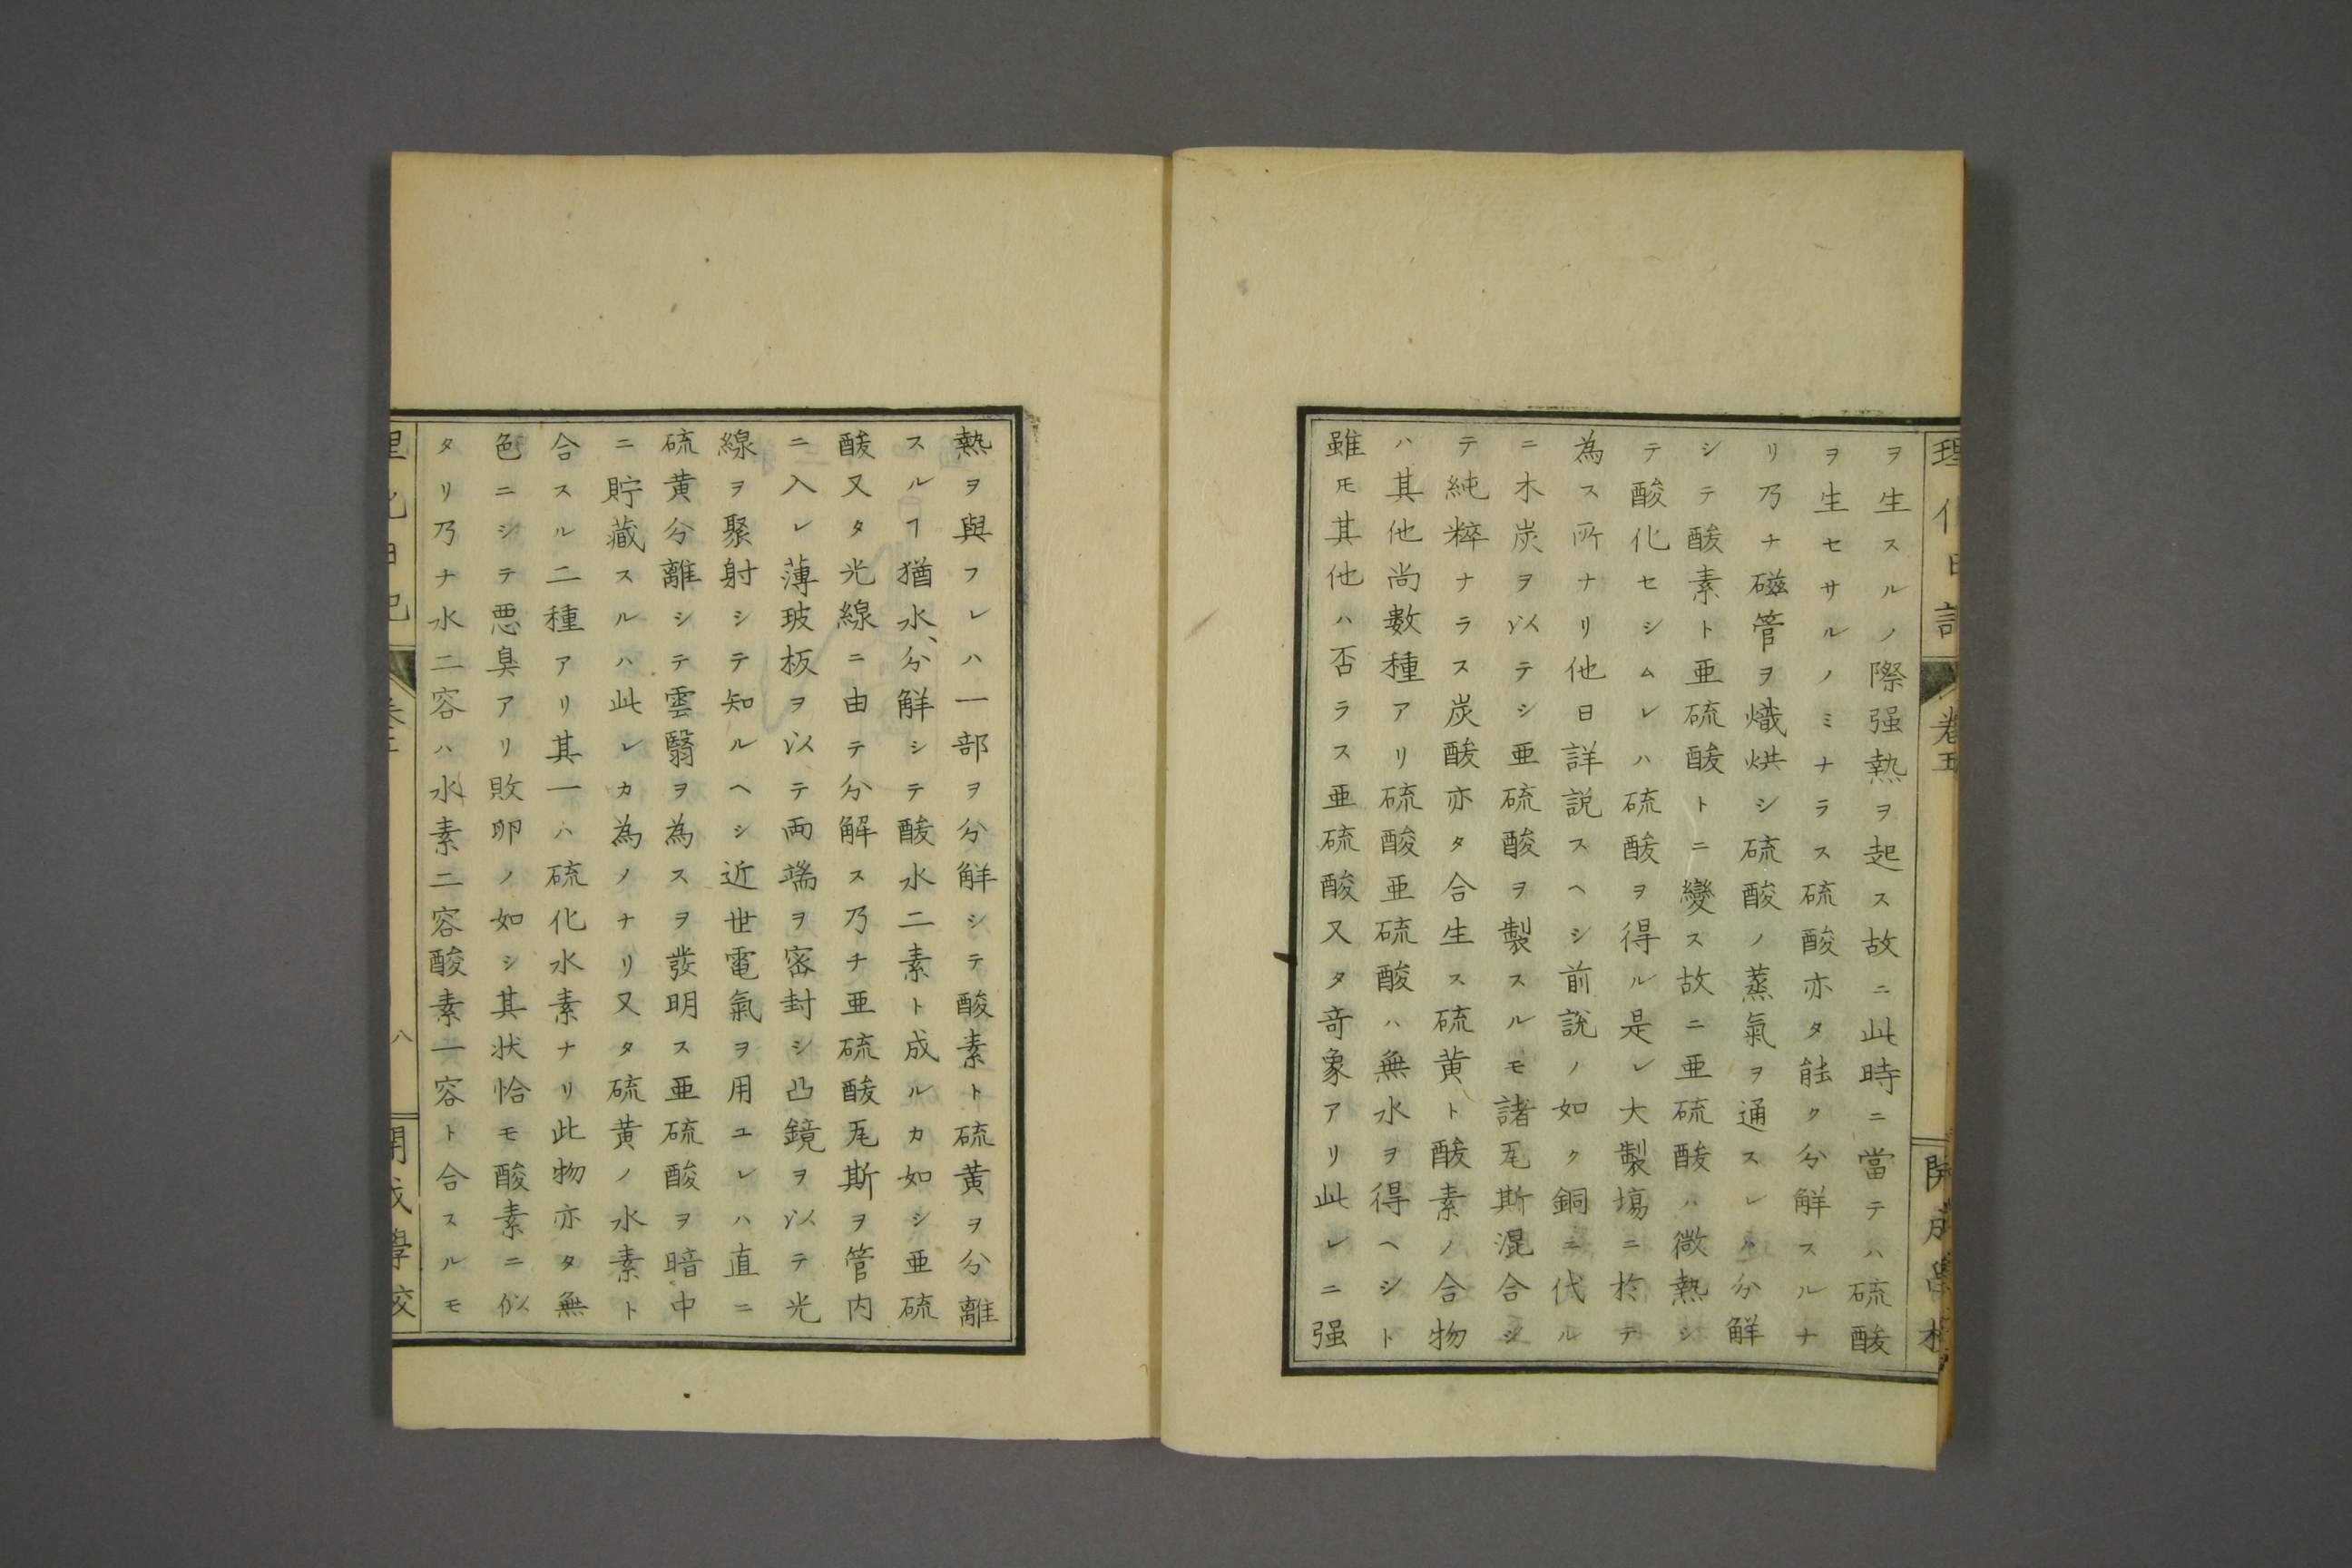 理化日記
卷五
開成學校
ヲ生スルノ際强熱ヲ起ス故ニ此時ニ當テハ硫酸
ヲ生セサルノミナラス硫酸亦タ能ク分解スルナ
リ乃ナ磁管ヲ熾烘シ硫酸ノ蒸氣ヲ通スレハ分解
シテ酸素ト亜硫酸トニ變ス故ニ亜硫酸ハ微熱シ
テ酸化セシムレハ硫酸ヲ得ル是レ大製塲ニ於テ
為ス所ナリ他日詳説スヘシ前説ノ如ク銅ニ代ル
ニ木炭ヲ以テシ亜硫酸ヲ製スルモ諸瓦斯混合シ
テ純粹ナラス炭酸亦タ合生ス硫黄ト酸素ノ合物
ハ其他尚數種アリ硫酸亜硫酸ハ無水ヲ得ヘシト
雖𪜈其他ハ否ラス亜硫酸又タ奇象アリ此レニ强
熱ヲ與フレハ一部ヲ分解シテ酸素ト硫黄ヲ分離
スルヿ猶水、分解シテ酸水二素ト成ルカ如シ亜硫
酸又タ光線ニ由テ分解ス乃チ亜硫酸瓦斯ヲ管内
ニ入レ薄玻板ヲ以テ両端ヲ密封シ凸鏡ヲ以テ光
線ヲ聚射シテ知ルヘシ近世電氣ヲ用ユレハ直ニ
硫黄分離シテ雲翳ヲ為スヲ發明ス亜硫酸ヲ暗中
ニ貯藏スルハ此レカ為ノナリ又タ硫黄ノ水素ト
合スル二種アリ其一ハ硫化水素ナリ此物亦タ無
色ニシテ悪臭アリ敗卵ノ如シ其状恰モ酸素ニ似
タリ乃ナ水二容ハ水素二容酸素一容ト合スルモ
理化日記
卷五
八
開成學校